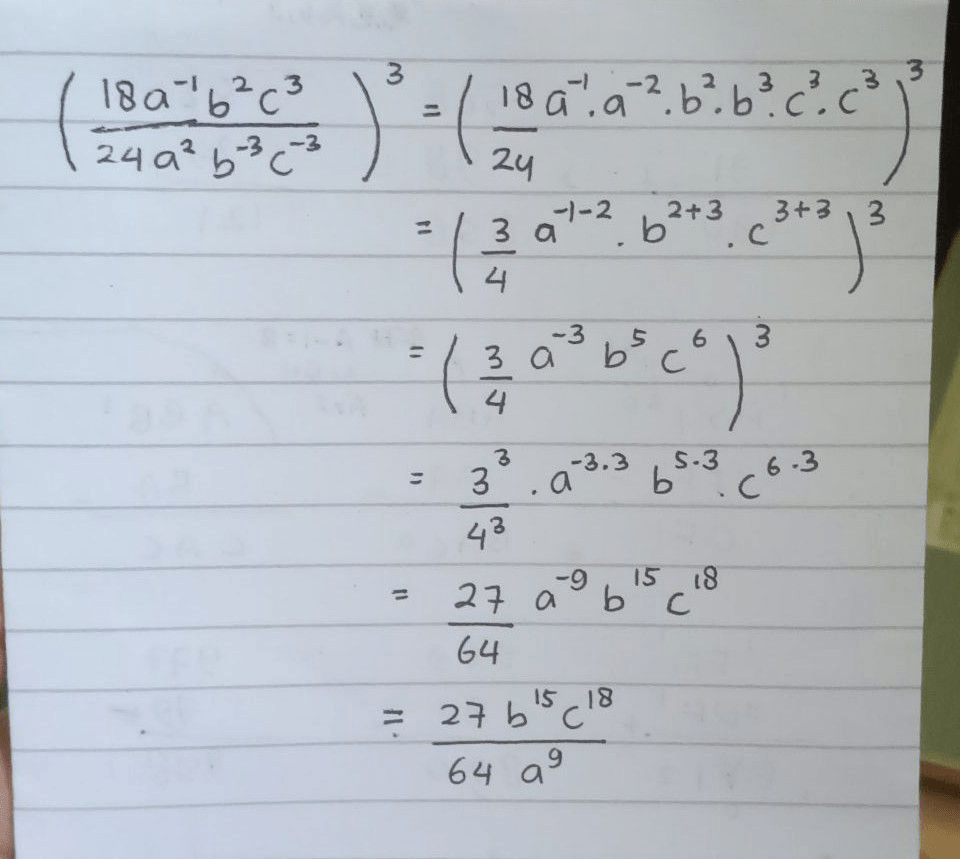 (18a⁻¹b²c³ / 24a²b⁻³c⁻³)³ = (18/24 a⁻¹.a⁻².b².b³.c³.c³)³
= (3/4 a⁻¹⁻².b²⁺³.c³⁺³)³
= (3/4 a⁻³ b⁵ c⁶)³
= 3³/4³ . a⁻³·³ b⁵·³ . c⁶·³
= 27/64 a⁻⁹ b¹⁵ c¹⁸
= 27 b¹⁵ c¹⁸ / 64 a⁹